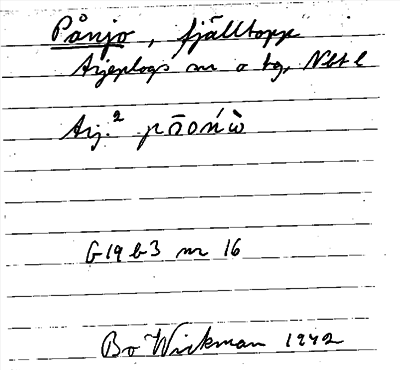 Pånjo, fjälltopp
Arjeplogs sn o tg, Nbt l
Arj.² pāońὼ
G19 b3 nr 16
Bo Wickman 1942